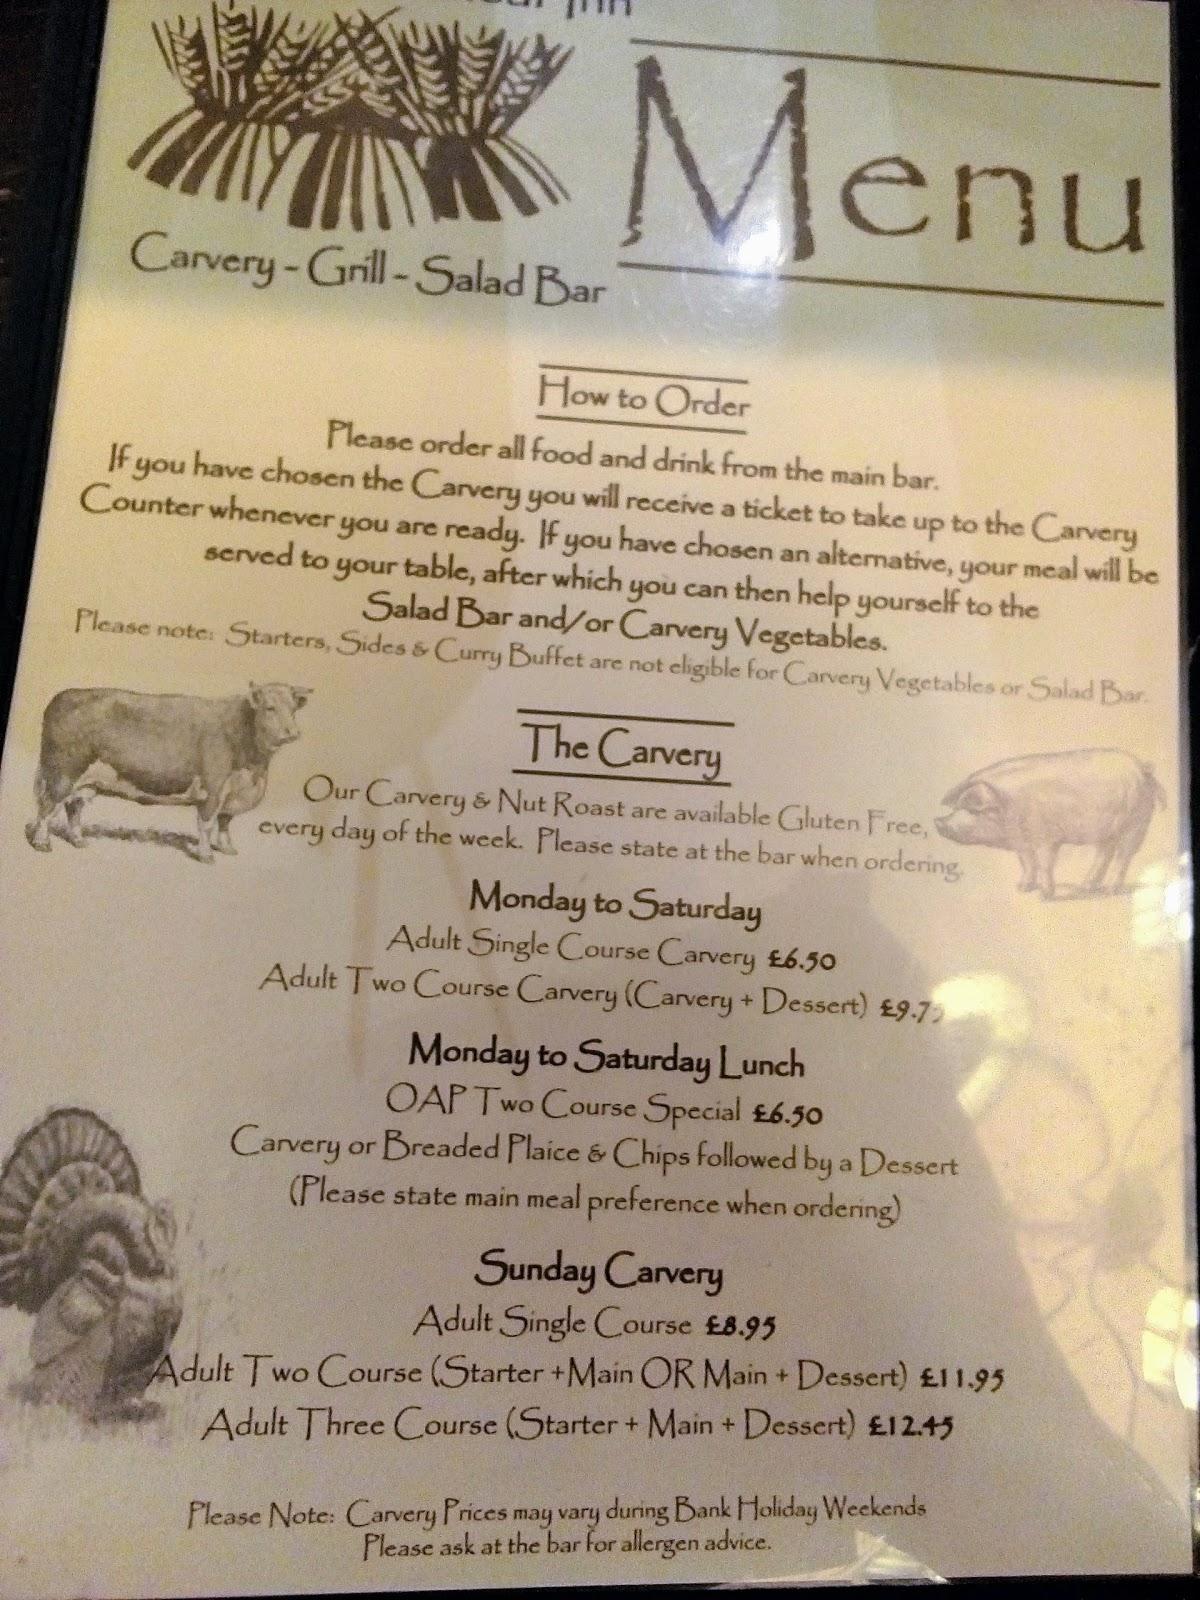 Inn
Menu
Carvery - Grill - Salad Bar
How to Order
Please order all food and drink from the main bar.
If you have chosen the Carvery you will receive a ticket to take up to the Carvery
Counter whenever you are ready. If you have chosen an alternative, your meal will be
served to your table, after which you can then help yourself to the
Salad Bar and/or Carvery Vegetables.
Please note: Starters, Sides & Curry Buffet are not eligible for Carvery Vegetables or Salad Bar.
The Carvery
Our Carvery & Nut Roast are available Gluten Free,
every day of the week. Please state at the bar when ordering.
Monday to Saturday
Adult Single Course Carvery £6.50
Adult Two Course Carvery (Carvery + Dessert) £9.75
Monday to Saturday Lunch
OAP Two Course Special £6.50
Carvery or Breaded Plaice & Chips followed by a Dessert
(Please state main meal preference when ordering)
Sunday Carvery
Adult Single Course £8.95
Adult Two Course (Starter +Main OR Main + Dessert) £11.95
Adult Three Course (Starter + Main + Dessert) £12.45
Please Note: Carvery Prices may vary during Bank Holiday Weekends
Please ask at the bar for allergen advice.